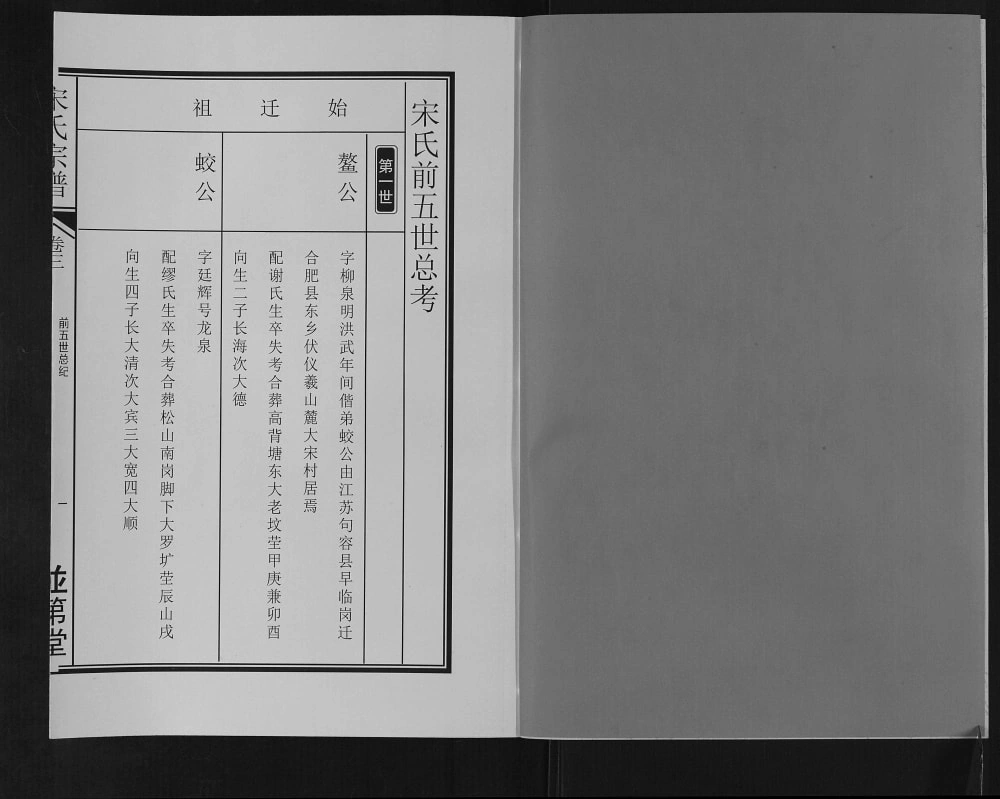 宋氏前五世总考
第一世
始迁祖
鳌公
字柳泉明洪武年间偕弟蛟公由江苏句容县早临岗迁
合肥县东乡伏仪羲山麓大宋村居焉
配谢氏生卒失考合葬高背塘东大老坟茔甲庚兼卯酉
向生二子长大海次大德
蛟公
字廷辉号龙泉
配缪氏生卒失考合葬松山南岗脚下大罗圹茔辰山戌
向生四子长大清次大宾三大宽四大顺
宋氏宗谱
卷三
前五世总纪
一
第堂